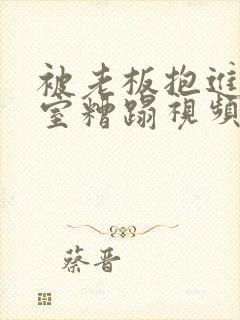 被老板抱进
室糟蹋視頻
蔡晋